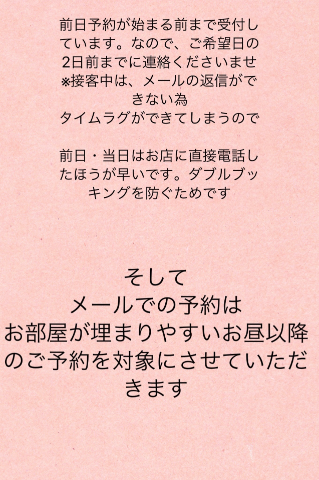 前日予約が始まる前まで受付し
ています。なので、ご希望日の
2日前までに連絡くださいませ
※接客中は、メールの返信がで
きない為
タイムラグができてしまうので
前日・当日はお店に直接電話し
たほうが早いです。ダブルブッ
キングを防ぐためです
そして
メールでの予約は
お部屋が埋まりやすいお昼以降
のご予約を対象にさせていただ
きます